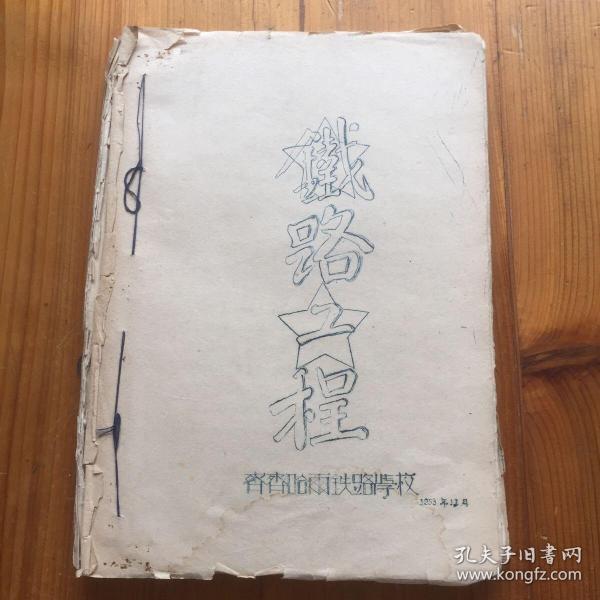 鐵路工程
齐齐哈雨铁路學校
1953年12月
孔夫子旧书网
www.kongfz.com